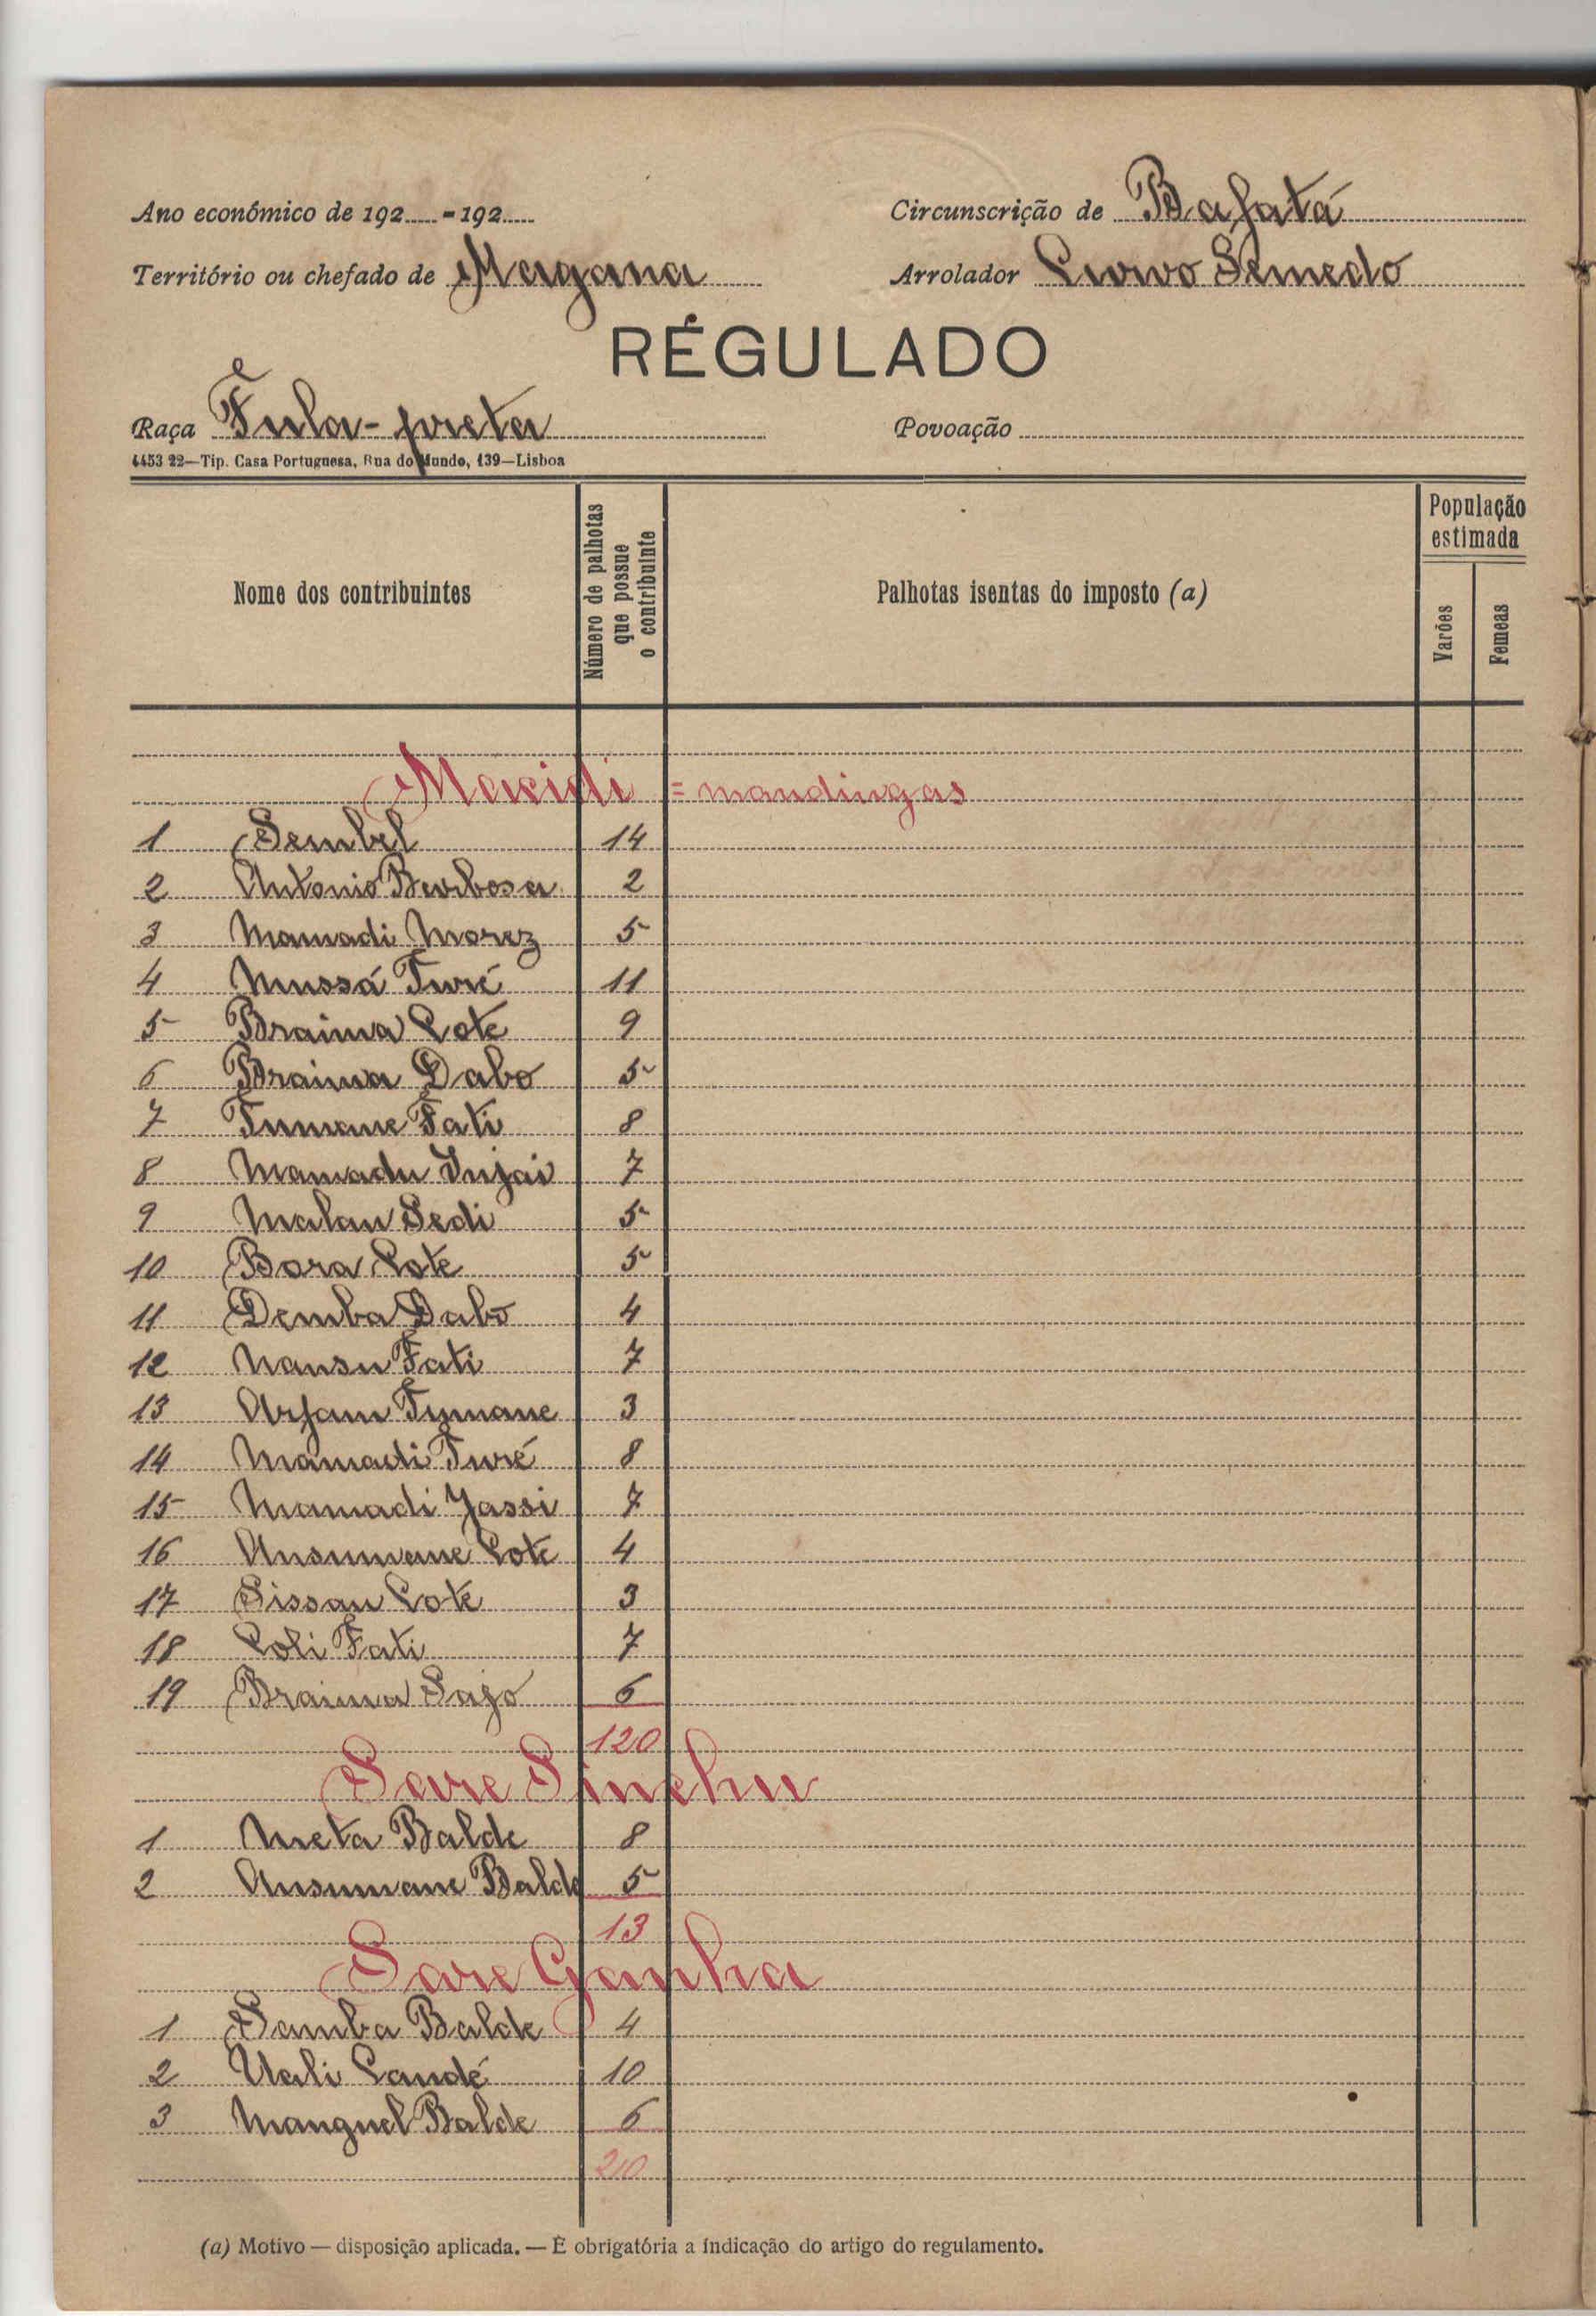 Ano económico de 192.....-192..... Circunscrição de Bafatá
Território ou chefado de Magana Arrolador Semedo
RÉGULADO
Raça Fula-preta Povoação
4453 22—Tip. Casa Portuguesa, Rua do Mundo, 139—Lisboa
Nome dos contribuintes
Número de palhotas que possue o contribuinte
Palhotas isentas do imposto (a)
População estimada
Varões
Femeas
= mandingas
1 Sembel 14
2 Antonio Barbosa 2
3 Mamadi 5
4 Mussá Turé 11
5 Braima Cote 9
6 Braima Dabo 5
7 Tumane Fati 8
8 Mamadu Injai 7
9 Malan Sedi 5
10 Bora Cote 5
11 Demba Dabo 4
12 Nansu Fati 7
13 Arfam Tumane 3
14 Mamadi Turé 8
15 Mamadi Jassi 7
16 Ansumane Cote 4
17 Sissau Cote 3
18 Coli Fati 7
19 Braima Sajo 6
120
Sare Sinchu
1 Meta Balde 8
2 Ansumane Balde 5
13
Sare Ganha
1 Samba Balde 4
2 Uali Candé 10
3 Manguel Balde 6
20
(a) Motivo — disposição aplicada. — É obrigatória a indicação do artigo do regulamento.